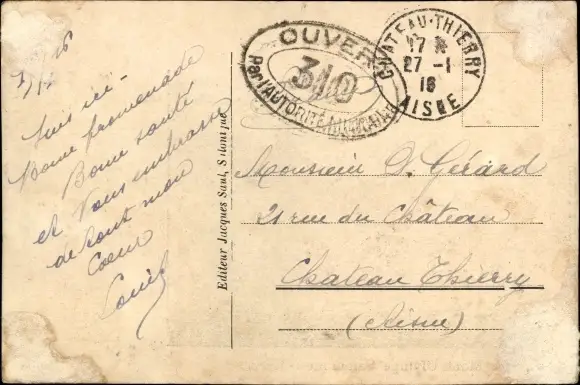 Suis ici -
Bonne promenade
Bonne santé
et Vous embrasse
de tout mon
Coeur
Louis
Editeur Jacques Saul, Salonique
OUVERT
310
Par l'AUTORITÉ MILITAIRE
CHATEAU-THIERRY
17
27 -1
16
AISNE
Monsieur D. Gérard
21 rue du Château
Chateau Thierry
(Aisne)